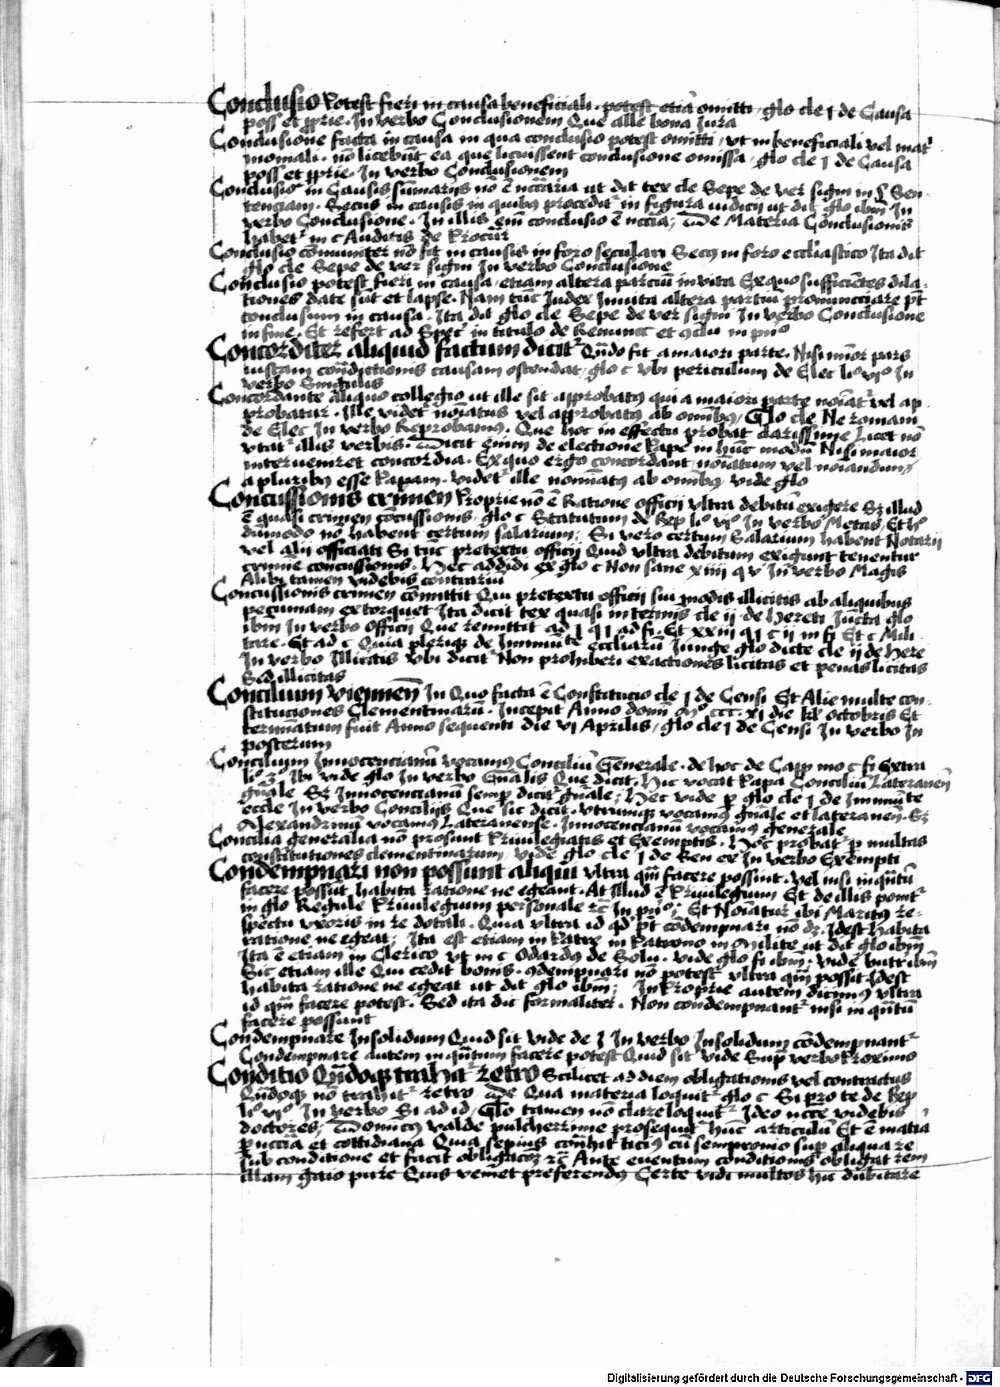 Conclusio Potest fieri in causa beneficiali · potest etiā omitti / glo cle j de Causa
poss et pprie · In verbo Conclusionem Que alle bona Jura
Conclusione facta in causa in qua conclusio potest omitti / vt in beneficiali vel mat
monali · nō licebūt ea que licuissent conclusione omissa / glo cle j de Causa
poss et pprie · In verbo Conclusionem
Conclusio in Causis sūmarijs nō ē nccāria ut dit tex cle Sepe de ver sigm in § Sen
tenciam · Secus in causis in quibꝯ procedit in figura iudicii ut dit glo ibm In
verbo Conclusione · In illis em̄ conclusio ē nccīa / Materia Conclusionis
habet in c Auditis de Procur
Conclusio cōmuniter nō fit in causis in foro seculari Secꝯ in foro eccliastico Ita dit
glo cle Sepe de ver sigm In verbo Conclusione
Conclusio potest fieri in causa / etiam altera parcium invita Ex quo sufficiētes dila
tiones date sūt et lapse · Nam tūc Iudex Invita altera partiū pronuncciare pt
conclusum in causa · Ita dit glo cle Sepe de ver sigm In verbo Conclusione
in fine · Et refert ad Spec in titulo de Renuncc et qclu in pn°
Concorditer aliquid factum dicit Qn̄do fit a maiori parte · Nisi mīor pars
iustam cōndictionis causam ostendat / glo c vbi periculum de Elec li° vj° In
verbo Singulis
Concordante aliquo collegio ut ille sit approbatꝯ qui a maiori parte noīat vel ap
probatur · Ille videt noīatus vel approbatꝯ ab omībꝯ / Glo cle Ne romani
de Elec In verbo Reprobamꝯ · Que hoc in effectu probat clarissime Licet nō
vtat illis verbis · Dicit enim de electione Pape in hūc modū Nisi maior
interveniret concordia · Ex quo ergo concordant / noīatum vel noīandum /
a pluribꝯ esse Papam · videt ille nominatꝯ ab omībꝯ vide glo
Concussionis crimen Proprie nō ē Ratione officij vltra debitū exigere Sꝫ illud
ē quasi crimen cōcussionis · glo c Statutum de Rep li° vj° In verbo Metas / Et
dūmodo nō habent certum salarium / Si vero certum Salarium habent Notarij
vel alii officiati Si tūc pretextu officij Quid vltra debitum exigunt tenentur
crimine concussionis · Hec addidi ex glo c Non sane xiiij q v In verbo Magis
Alibi tamen videbis contrariū
Concussionis crimen cōmittit Qui pretextu officij sui modis illicitis ab aliquibus
pecuniam extorquet Ita dicit tex quasi in terīs cle ij · de Hereti Iūcta glo
ibm In verbo officij Que remittit ad j q j ad fi · Et xxiij q j c ij in fi Et c Mili
tare · Et ad c Quia pleriqꝫ de Immūte eccliarū Iunge glo dicte cle ij de Here
In verbo Illicitis vbi dicit Non prohiberi exactiones licitas et penas licitas
Sed illicitas
Concilium viennen̄ In Quo facta ē Constitucio cle j de Censi Et Alie multe con
stituciones Clementinarū · Incepit Anno domī m° ccc · xj die kl octobris Et
terminatum fuit Anno sequenti die vj Aprilis / glo cle j de Censi In verbo In
posterum
Concilium Innocencianū vocamꝯ Conciliū Generale · de hoc de Capp mo c fi Extra
li° 3° Ibi vide glo In verbo Gn̄alis Que dicit · Hic vocat Papa Conciliū Lateranen̄
gn̄ale Sꝫ Innocencianū semp dicit gn̄ale / Hec vide p glo cle j de Immūte
eccle In verbo Concilijs Que sic dicit · vtrumqꝫ vocamꝯ gn̄ale et lateranen̄ · Sꝫ
Alexandrinū vocamꝯ Lateranense · Innocencianū vocamꝯ generale
Concilia generalia nō prosunt Priuilegiatis et Exemptis · Hoc probat p multas
constitutiones clementinarum / vide glo cle j de Reu ex In verbo Exempti
Condempnari non possunt aliqui vltra qm̄ facere possunt · vel nisi in qn̄tū
facere possūt habita ratione ne egeant · At Illud ē Priuilegium Et de illis ponit
in glo Regule Priuilegium personale rc̄ In pn° / Et Noīatur ibi Maritꝯ re
spectu vxoris in re dotali · Quia vltra id qd pt cōdempnari nō dꝫ · Idest habita
ratione ne egeat / Ita est etiam in Patre in Patrono in Milite ut dit glo ibm
Ita ē etiam in Clerico vt in c Odardꝯ de Solu · vide glo fi ibm · vide butr ibm
Sic etiam ille Qui cedit bonis · qdempnari nō potest vltra qm̄ possit · Idest
habita ratione ne egeat ut dit glo ibm / In Proprie autem dicimꝯ vltra
id qm̄ facere potest · Sed ita dit formaliter · Non condempnant nisi in qn̄tū
facere possunt
Condempnare Insolidum Quid sit vide de I In verbo Insolidum cōdempnant
Condempnare autem in qn̄tum facere potest Quid sit vide Sup verbo Proximo
Conditio Qn̄doqꝫ trahit retro Scilicet ad diem obligationis vel contractus
Qn̄doqꝫ nō trahit retro De Qua materia loquit glo c Si pro te de Rep
li° vj° In verbo Si ad id / Glo tamen nō clare loquit Ideo ncce videbis
doctores / Domicꝯ valde pulcherrime prosequit hūc articulū Et ē matīa
p nccīa et cottidiana Quia sepius cōn̄hit ticiꝯ cū sempronio sup aliqua re
sub conditione et facit obligacōꝫ rc̄ Ante euentum conditionis obligat rem
illam gaio pure Quis veniet preferendꝯ Certe vidi multos hic dubitare
Digitalisierung gefördert durch die Deutsche Forschungsgemeinschaft · DFG